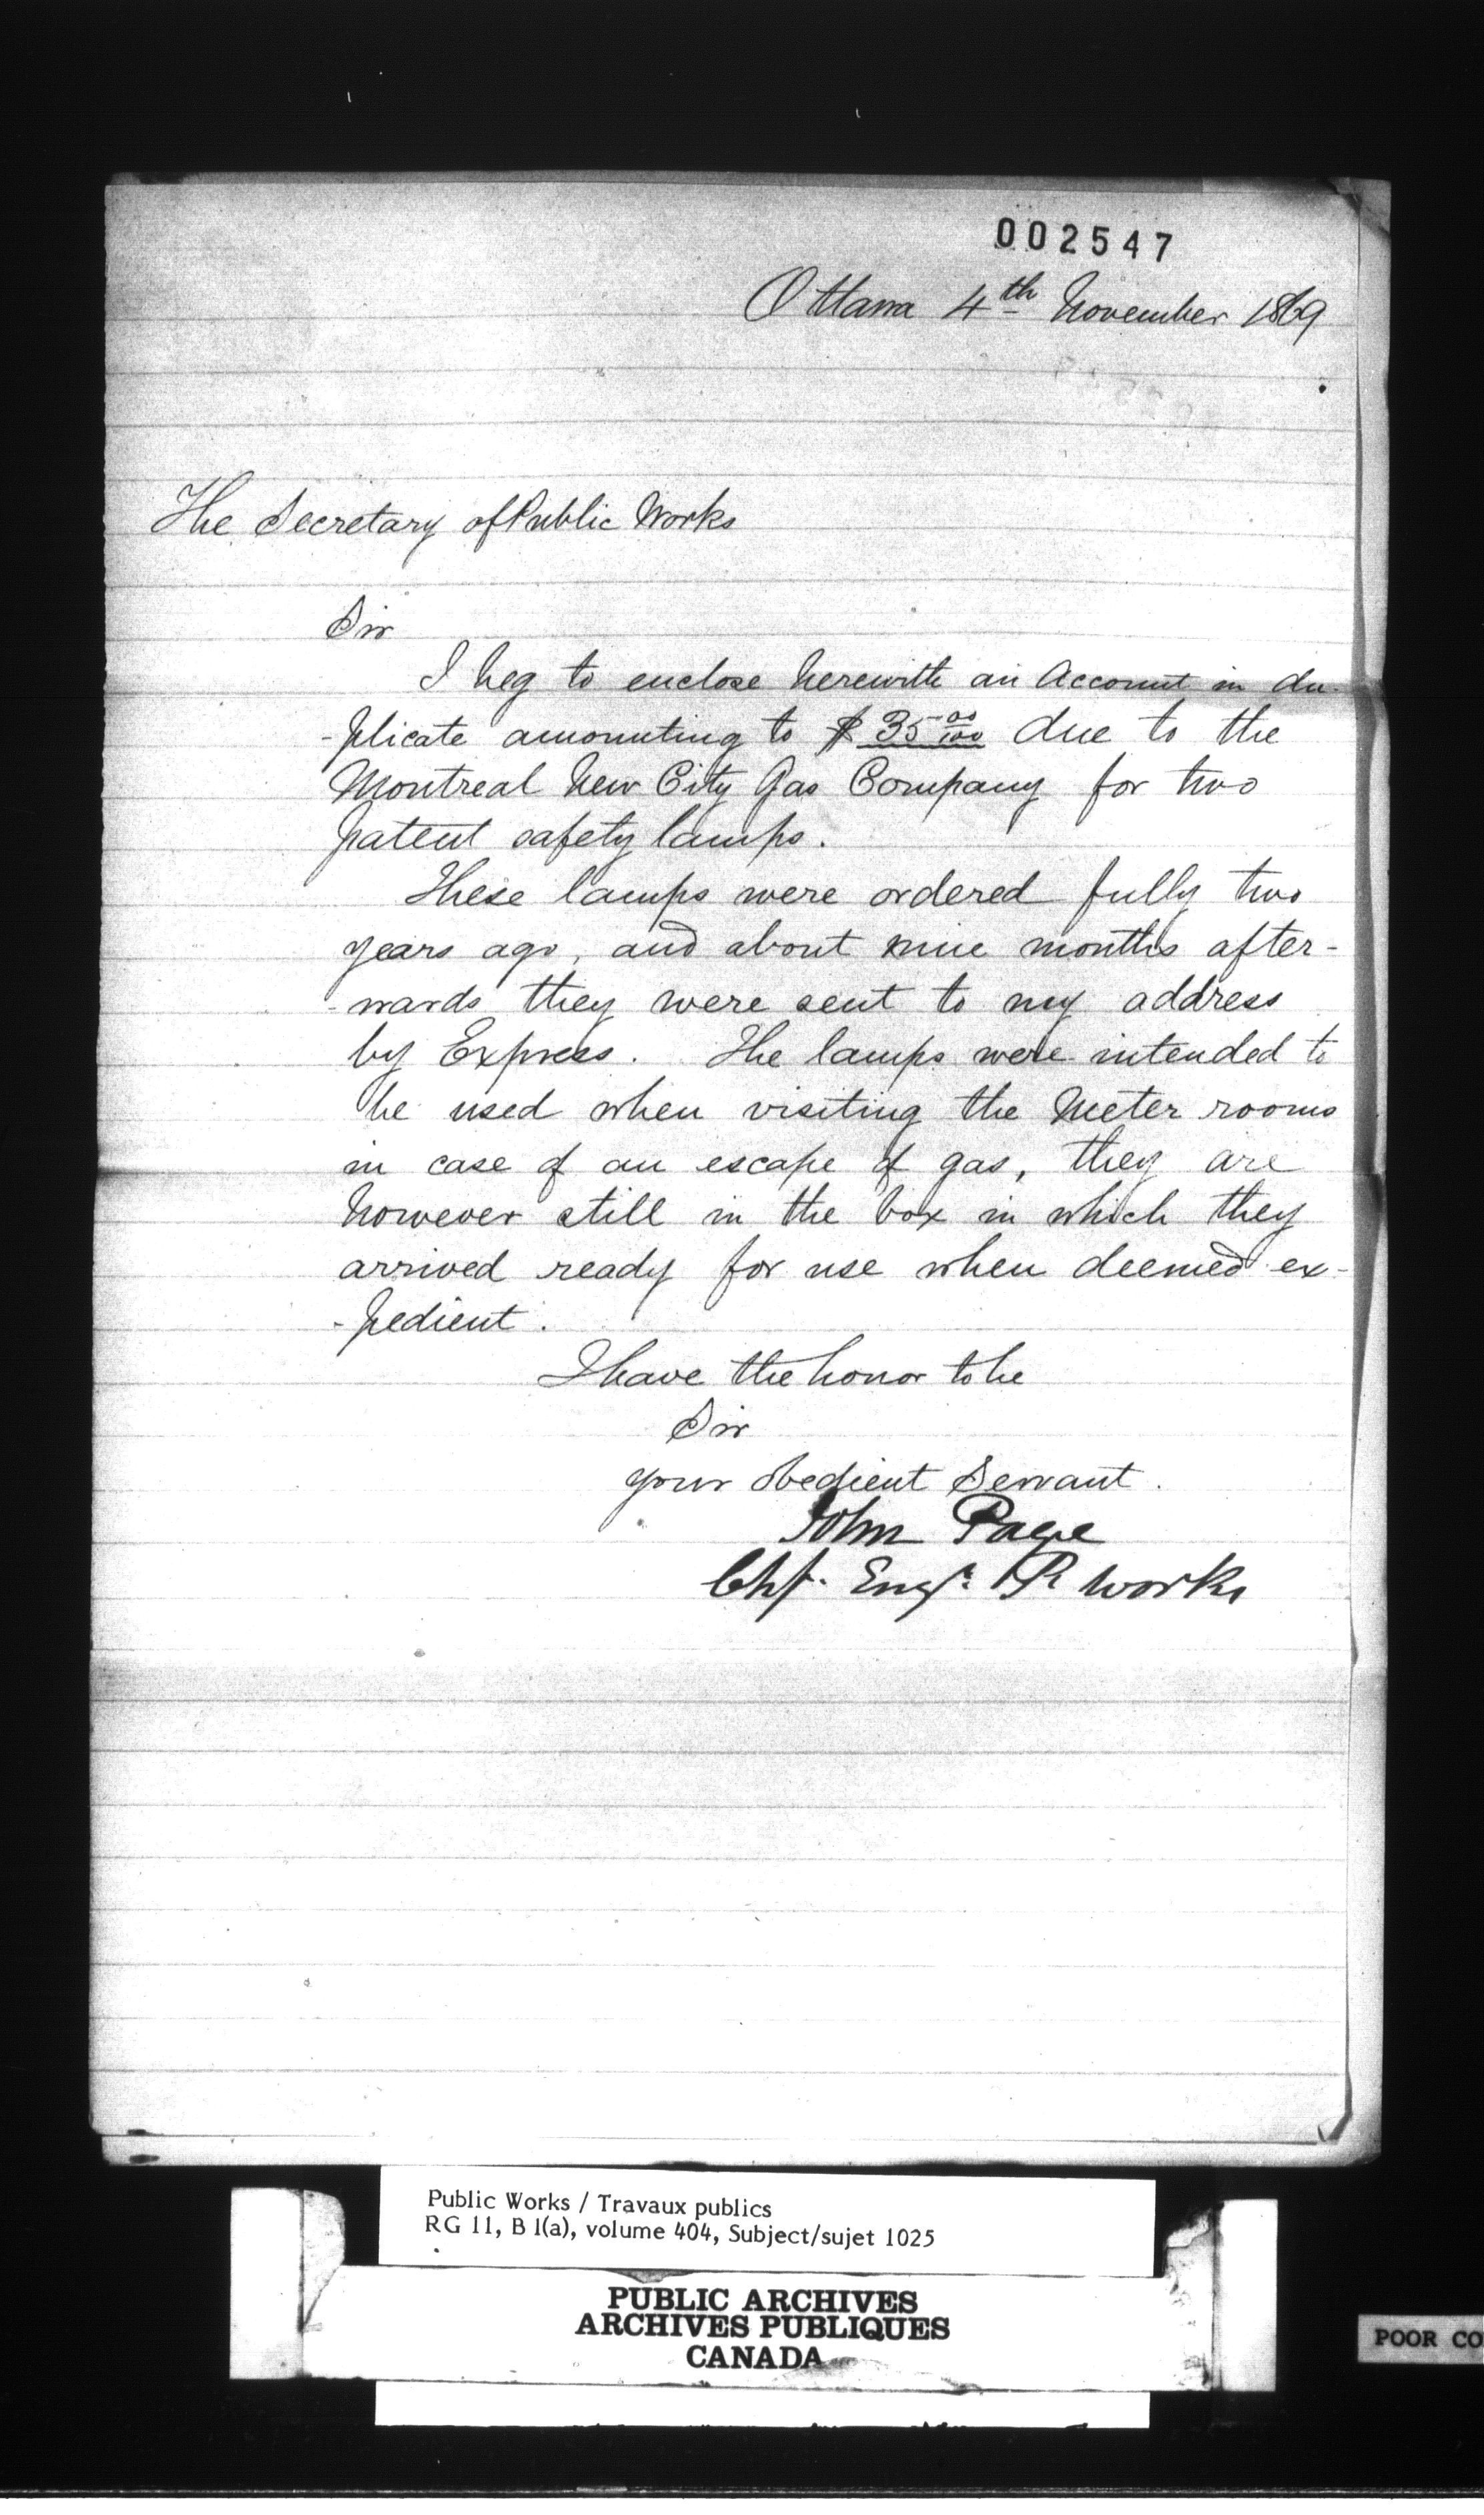 002547
Ottawa 4th November 1869
The Secretary of Public Works
Sir
I beg to enclose herewith an Account in du-
-plicate amounting to $35 00/100 due to the
Montreal New City Gas Company for two
patent safety lamps.
These lamps were ordered fully two
years ago, and about nine months after-
-wards they were sent to my address
by Express. The lamps were intended to
be used when visiting the Meter rooms
in case of an escape of gas, they are
however still in the box in which they
arrived ready for use when deemed ex-
-pedient.
I have the honor to be
Sir
your obedient Servant.
John Page
Chf. Engr. P. Works
Public Works / Travaux publics
RG 11, B 1(a), volume 404, Subject/sujet 1025
PUBLIC ARCHIVES
ARCHIVES PUBLIQUES
CANADA
POOR CO